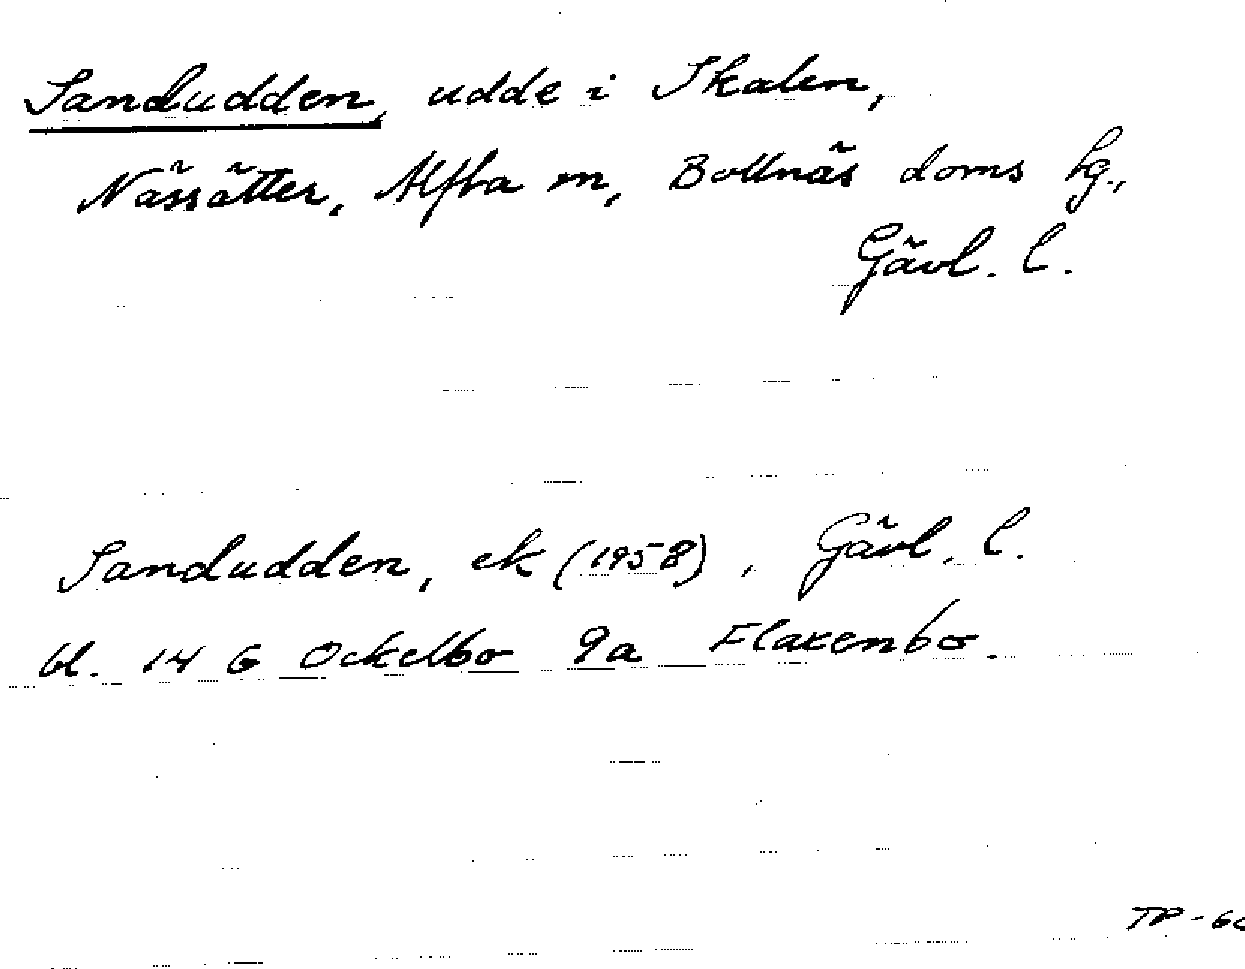 Sandudden, udde i Skalen,
Nässätter, Alfta sn, Bollnäs doms hg.,
Gävl. l.
Sandudden, ek (1958), Gävl. l.
bl. 14 G Ockelbo 9a Flaxenbo.
TP-60